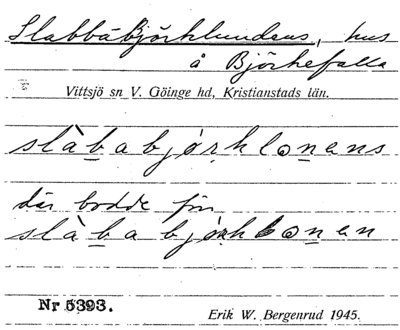 Slabbabjörklundens, hus
å Björkefalla
Vittsjö sn V. Göinge hd, Kristianstads län.
slàbabjørklonens
där bodde för
slàbabjørklonen
Nr 5393.
Erik W. Bergenrud 1945.